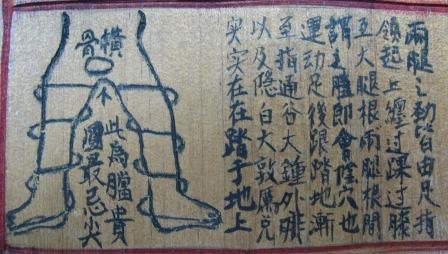 兩腿之勁皆由足指
領起上纏过踝过膝
至大腿根兩腿根間
謂之膛即會陰穴也
運动足後跟踏地漸
至指通谷大鐘外腓
以及隐白大敦厲兌
实实在在踏于地上
橫骨
此為膛貴
圓最忌尖